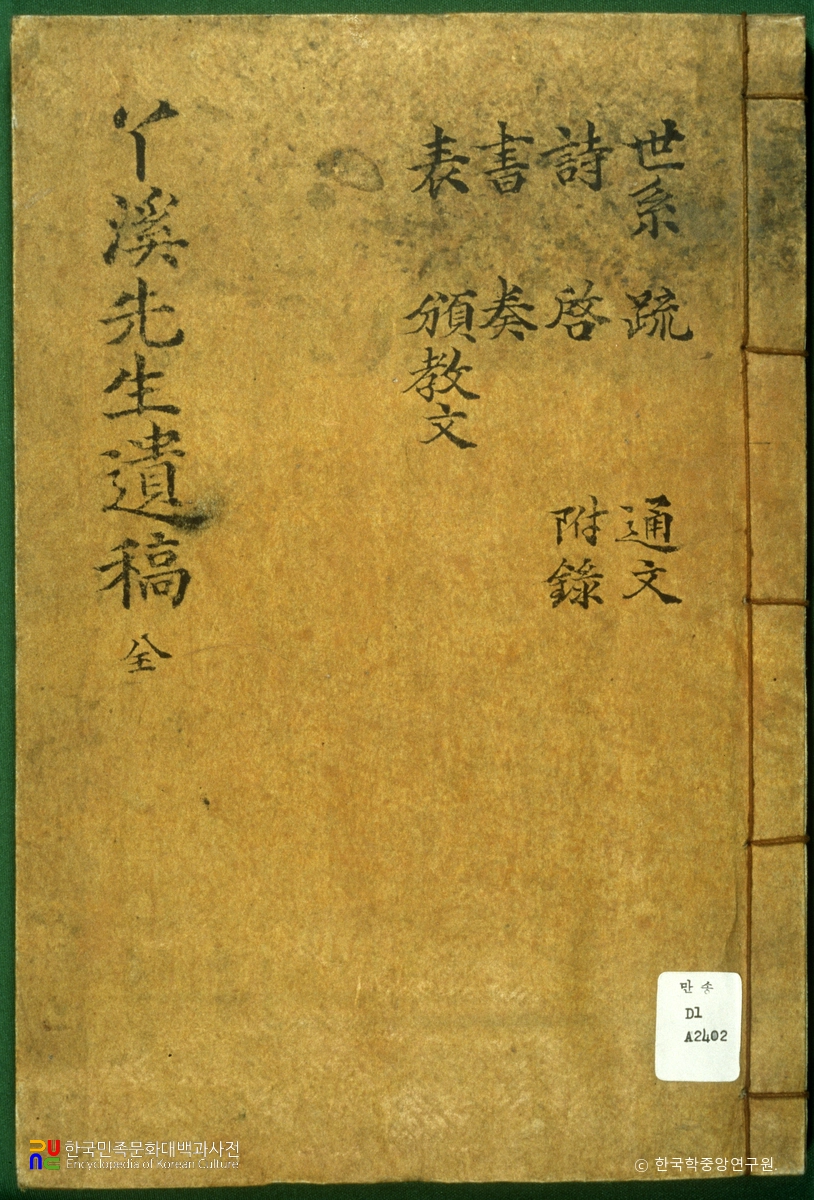 世系 疏 通文
詩 啓 附錄
書 奏
表 頒教文
丫溪先生遺稿 全
만송
D1
A2402
한국민족문화대백과사전
Encyclopedia of Korean Culture
© 한국학중앙연구원